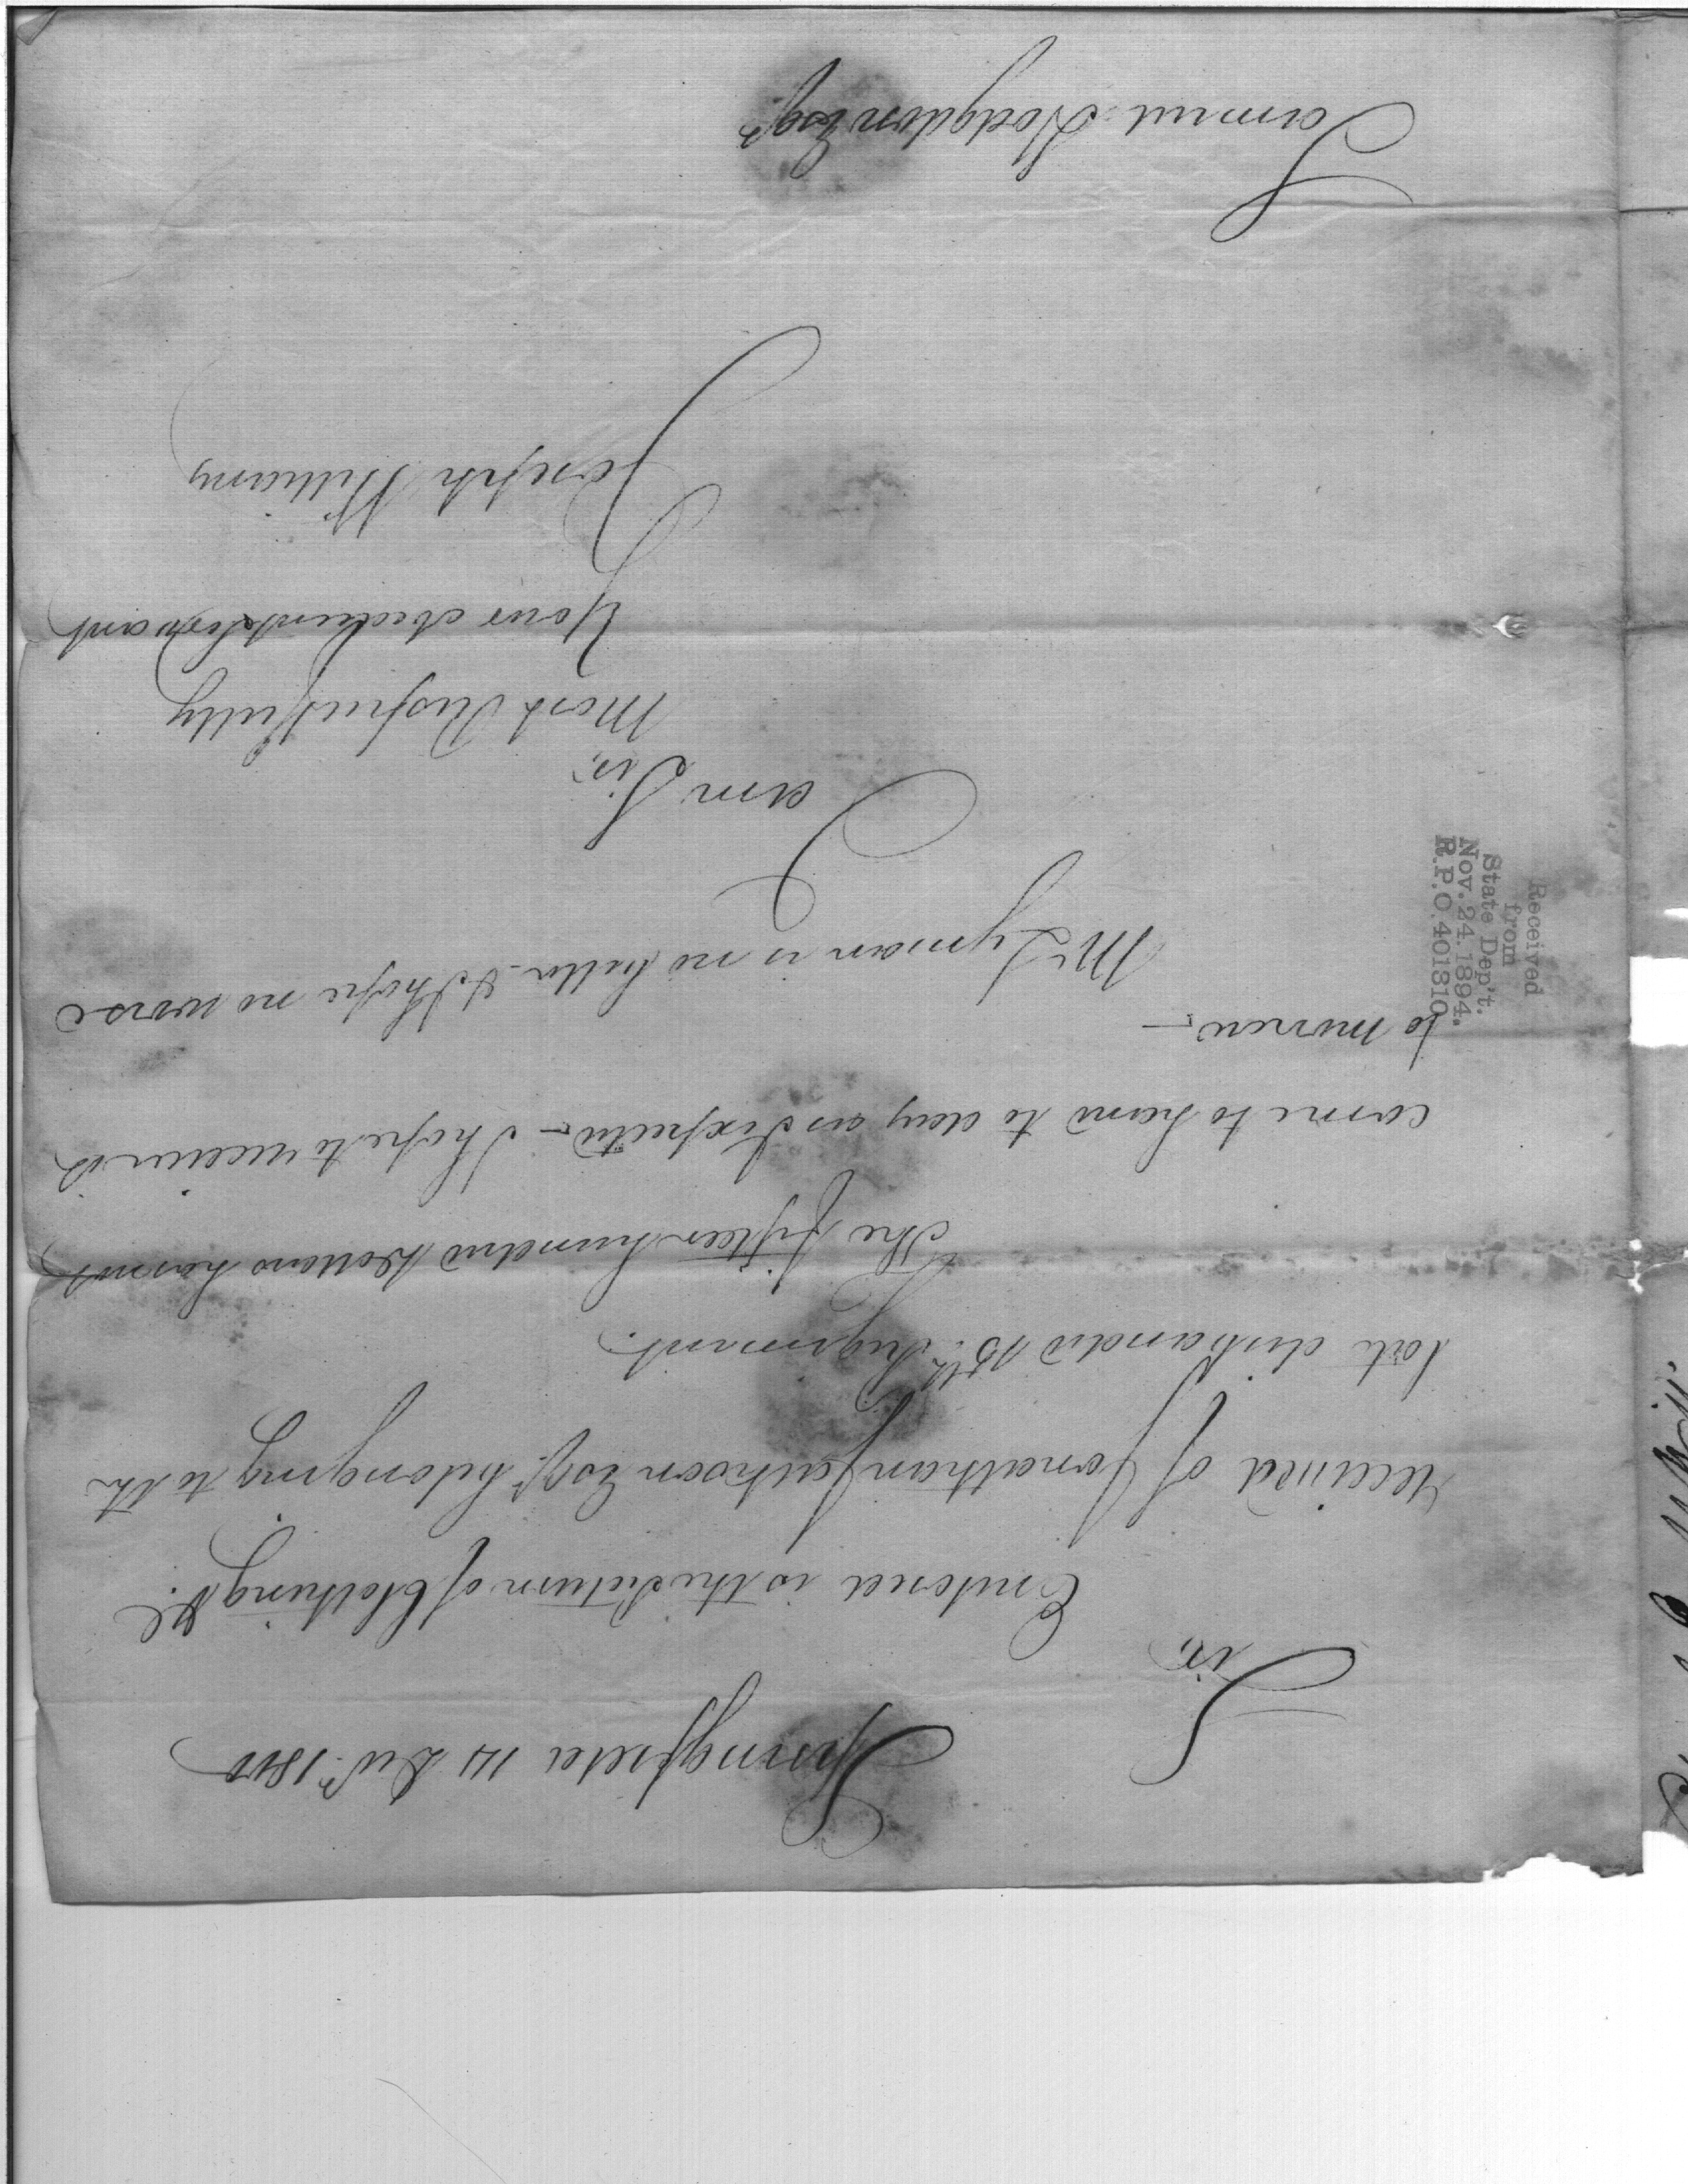 Springfield 14 Decr. 1800
Sir,
Enclosed is the Return of Clothing &c.
received of Jonathan Jackson Esqr. belonging to the
late disbanded 15th. Regiment.
The fifteen hundred Dollars has not
come to hand to day as I expected — I hope to receive it
to morrow. —
Mr Lyman is no better & I hope no worse
I am Sir,
Most Respectfully
Your obedient servant
Joseph Williams
Samuel Hodgdon Esqr.
Received
from
State Dep't.
Nov. 24. 1894.
R.P.O. 401310.